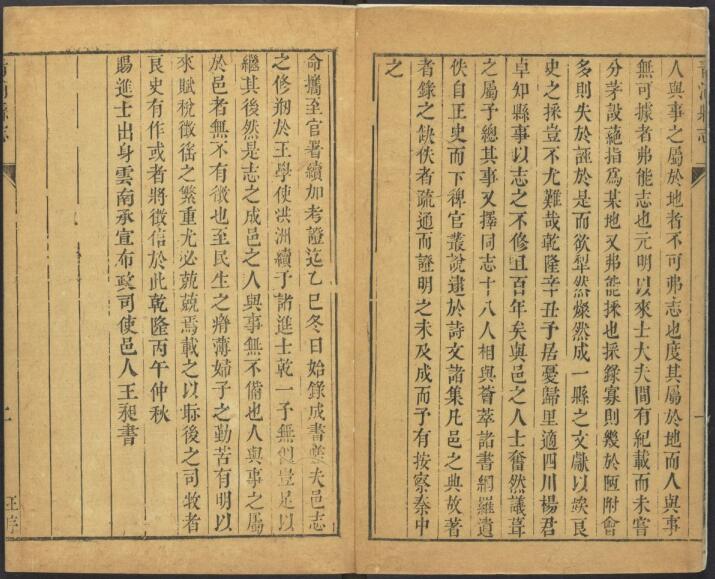 人與事之屬於地者不可弗志也度其屬於地而人與事
無可據者弗能志也元明以來士大夫間有紀載而未嘗
分茅設蕝指爲某地又弗能採也採錄寡則幾於陋附會
多則失於誣於是而欲犁然燦然成一縣之文獻以俟良
史之採豈不尤難哉乾隆辛丑予居憂歸里適四川楊君
卓知縣事以志之不修且百年矣與邑之人士奮然議葺
之屬予總其事又擇同志十八人相與薈萃諸書網羅遺
佚自正史而下稗官叢說逮於詩文諸集凡邑之典故著
者錄之缺佚者疏通而證明之未及成而予有按察秦中
之
命攜至官署續加考證迄乙巳冬日始錄成書
夫邑志
之修刱於王學使洪洲續于諸進士乾一予無似豈足以
繼其後然是志之成邑之人與事無不備也人與事之屬
於邑者無不有徵也至民生之瘠薄婦子之勤苦有明以
來賦稅徵徭之繁重尤必兢兢焉載之以眎後之司牧者
良史有作或者將徵信於此乾隆丙午仲秋
賜進士出身雲南承宣布政司使邑人王昶書
青浦縣志
一
青浦縣志
二
王序